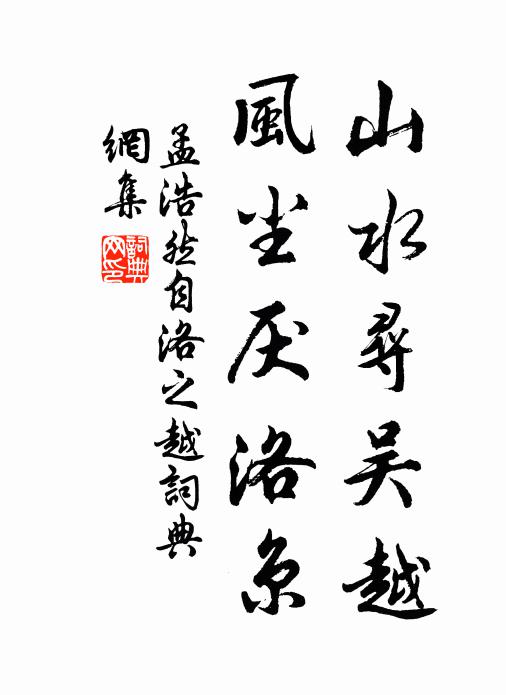 山水尋吴越
風尘厌洛京
孟浩然自洛之越詞典
網集
詞典
网印